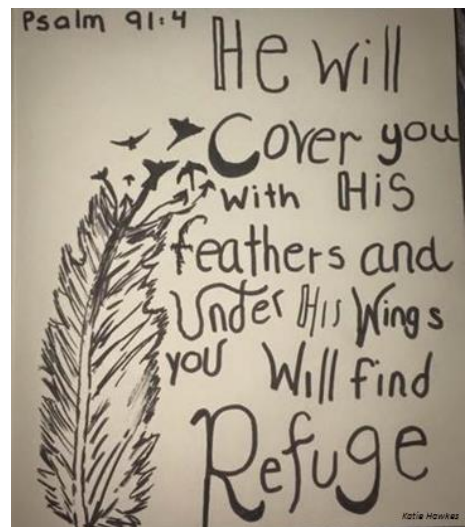 Psalm 91:4
He will
Cover you
with His
feathers and
Under His Wings
you Will find
Refuge
Katie Hawkes